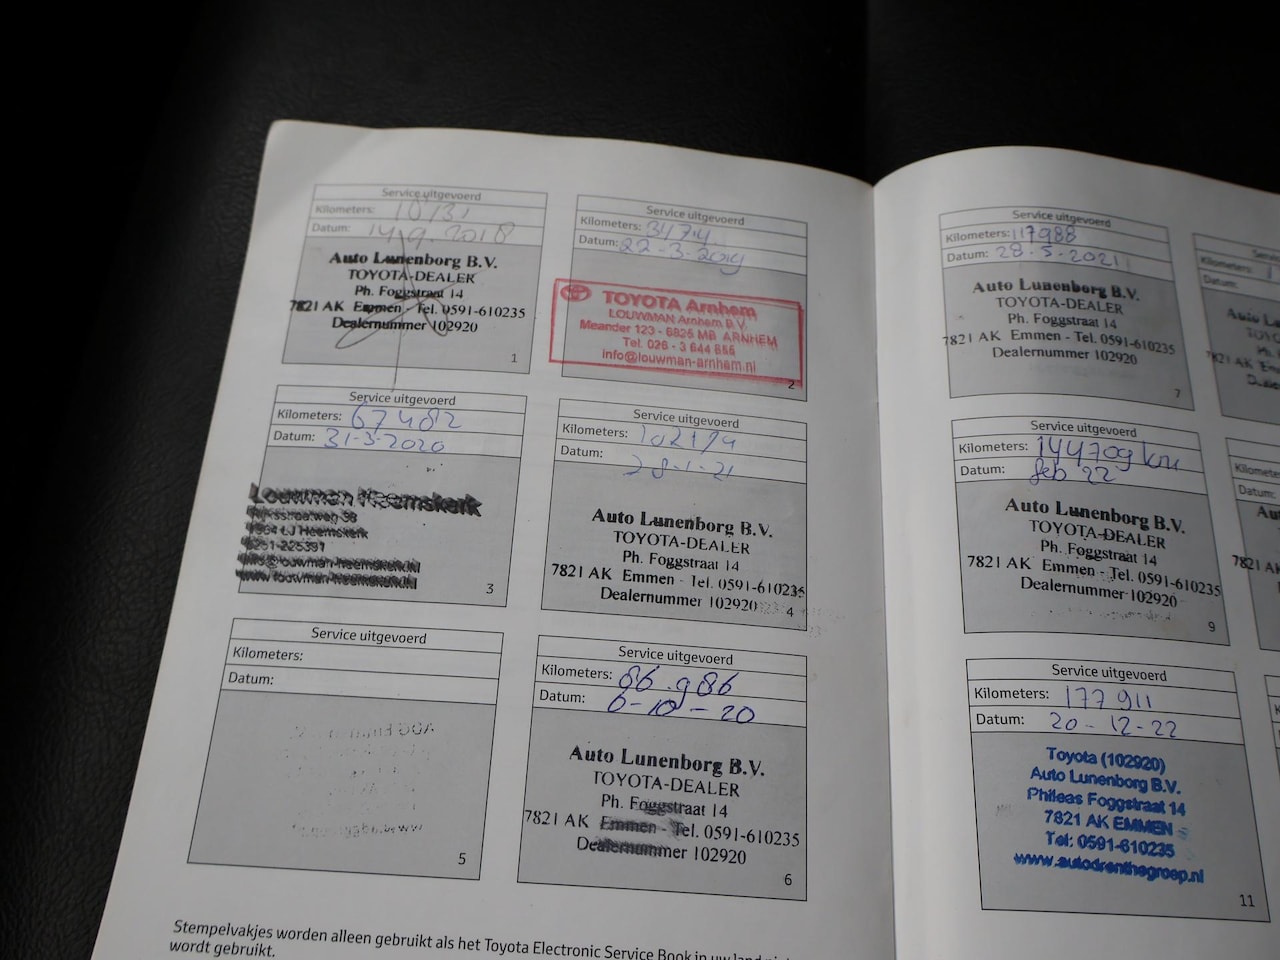 Service uitgevoerd
Kilometers: 10131
Datum: 14.9.2018
Auto Lunenborg B.V.
TOYOTA-DEALER
Ph. Foggstraat 14
7821 AK Emmen - Tel. 0591-610235
Dealernummer 102920
1
Service uitgevoerd
Kilometers:
Datum: 22-3-2019
TOYOTA Arnhem
LOUWMAN Arnhem B.V.
Meander 123 - 6825 MB ARNHEM
Tel. 026 - 3 644 655
info@louwman-arnhem.nl
2
Service uitgevoerd
Kilometers: 67482
Datum: 31-3-2020
Louwman Heemskerk
Rijksstraatweg 98
1964 LJ Heemskerk
0251-225391
info@louwman-heemskerk.nl
www.louwman-heemskerk.nl
3
Service uitgevoerd
Kilometers: 102174
Datum:
28-1-21
Auto Lunenborg B.V.
TOYOTA-DEALER
Ph. Foggstraat 14
7821 AK Emmen - Tel. 0591-610235
Dealernummer 102920
4
Service uitgevoerd
Kilometers:
Datum:
5
Service uitgevoerd
Kilometers: 86.986
Datum: 6-10-20
Auto Lunenborg B.V.
TOYOTA-DEALER
Ph. Foggstraat 14
7821 AK Emmen - Tel. 0591-610235
Dealernummer 102920
6
Stempelvakjes worden alleen gebruikt als het Toyota Electronic Service Book in uw land
wordt gebruikt.
Service uitgevoerd
Kilometers: 117988
Datum: 28-5-2021
Auto Lunenborg B.V.
TOYOTA-DEALER
Ph. Foggstraat 14
7821 AK Emmen - Tel. 0591-610235
Dealernummer 102920
7
Service uitgevoerd
Kilometers: 144709 km
Datum: feb 22
Auto Lunenborg B.V.
TOYOTA-DEALER
Ph. Foggstraat 14
7821 AK Emmen - Tel. 0591-610235
Dealernummer 102920
9
Service uitgevoerd
Kilometers: 177911
Datum: 20-12-22
Toyota (102920)
Auto Lunenborg B.V.
Phileas Foggstraat 14
7821 AK EMMEN
Tel: 0591-610235
www.autodrenthegroep.nl
11
Kilometers:
Datum:
Kilometers:
Datum: